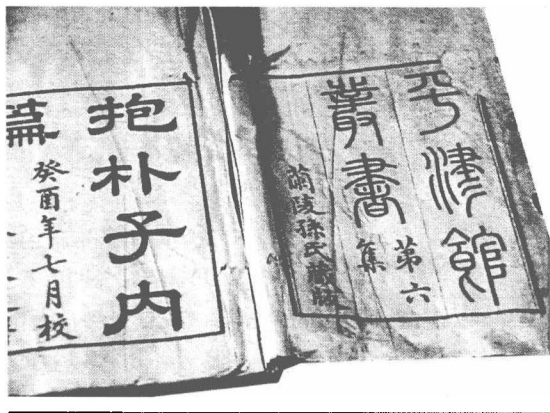 平津館
叢書
第六
集
蘭陵孫氏藏版
抱朴子内
篇
癸酉年七月校